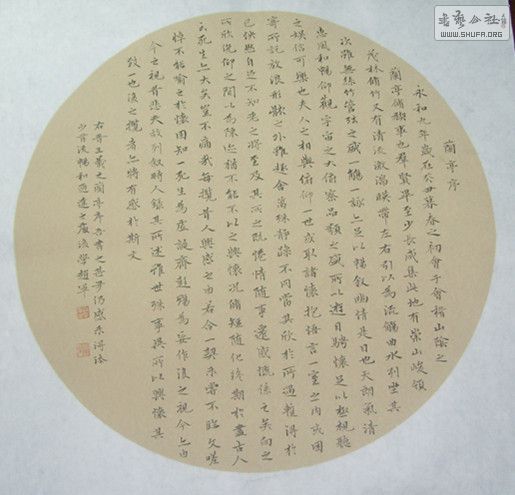 書藝公社
WWW.SHUFA.ORG
蘭亭序
永和九年歲在癸丑暮春之初會于會稽山陰之
蘭亭脩稧事也羣賢畢至少長咸集此地有崇山峻領
茂林脩竹又有清流激湍暎帶左右引以為流觴曲水列坐其
次雖無絲竹管弦之盛一觴一詠亦足以暢敘幽情是日也天朗氣清
惠風和暢仰觀宇宙之大俯察品類之盛所以遊目騁懷足以極視聽
之娛信可樂也夫人之相與俯仰一世或取諸懷抱悟言一室之內或因
寄所託放浪形骸之外雖趣舍萬殊靜躁不同當其欣於所遇暫得於
己快然自足不知老之將至及其所之既惓情隨事遷感慨係之矣向之
所欣俛仰之間以為陳迹猶不能不以之興懷況脩短隨化終期於盡古人
云死生亦大矣豈不痛哉每攬昔人興感之由若合一契未嘗不臨文嗟
悼不能喻之於懷固知一死生為虛誕齊彭殤為妄作後之視今亦由
今之視昔悲夫故列敘時人錄其所述雖世殊事異所以興懷其
致一也後之攬者亦將有感於斯文
右書王羲之蘭亭序
少有流暢和